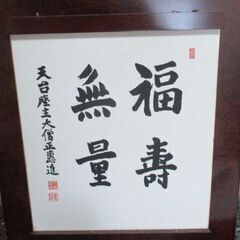 福壽
無量
天台座主大僧正惠迫